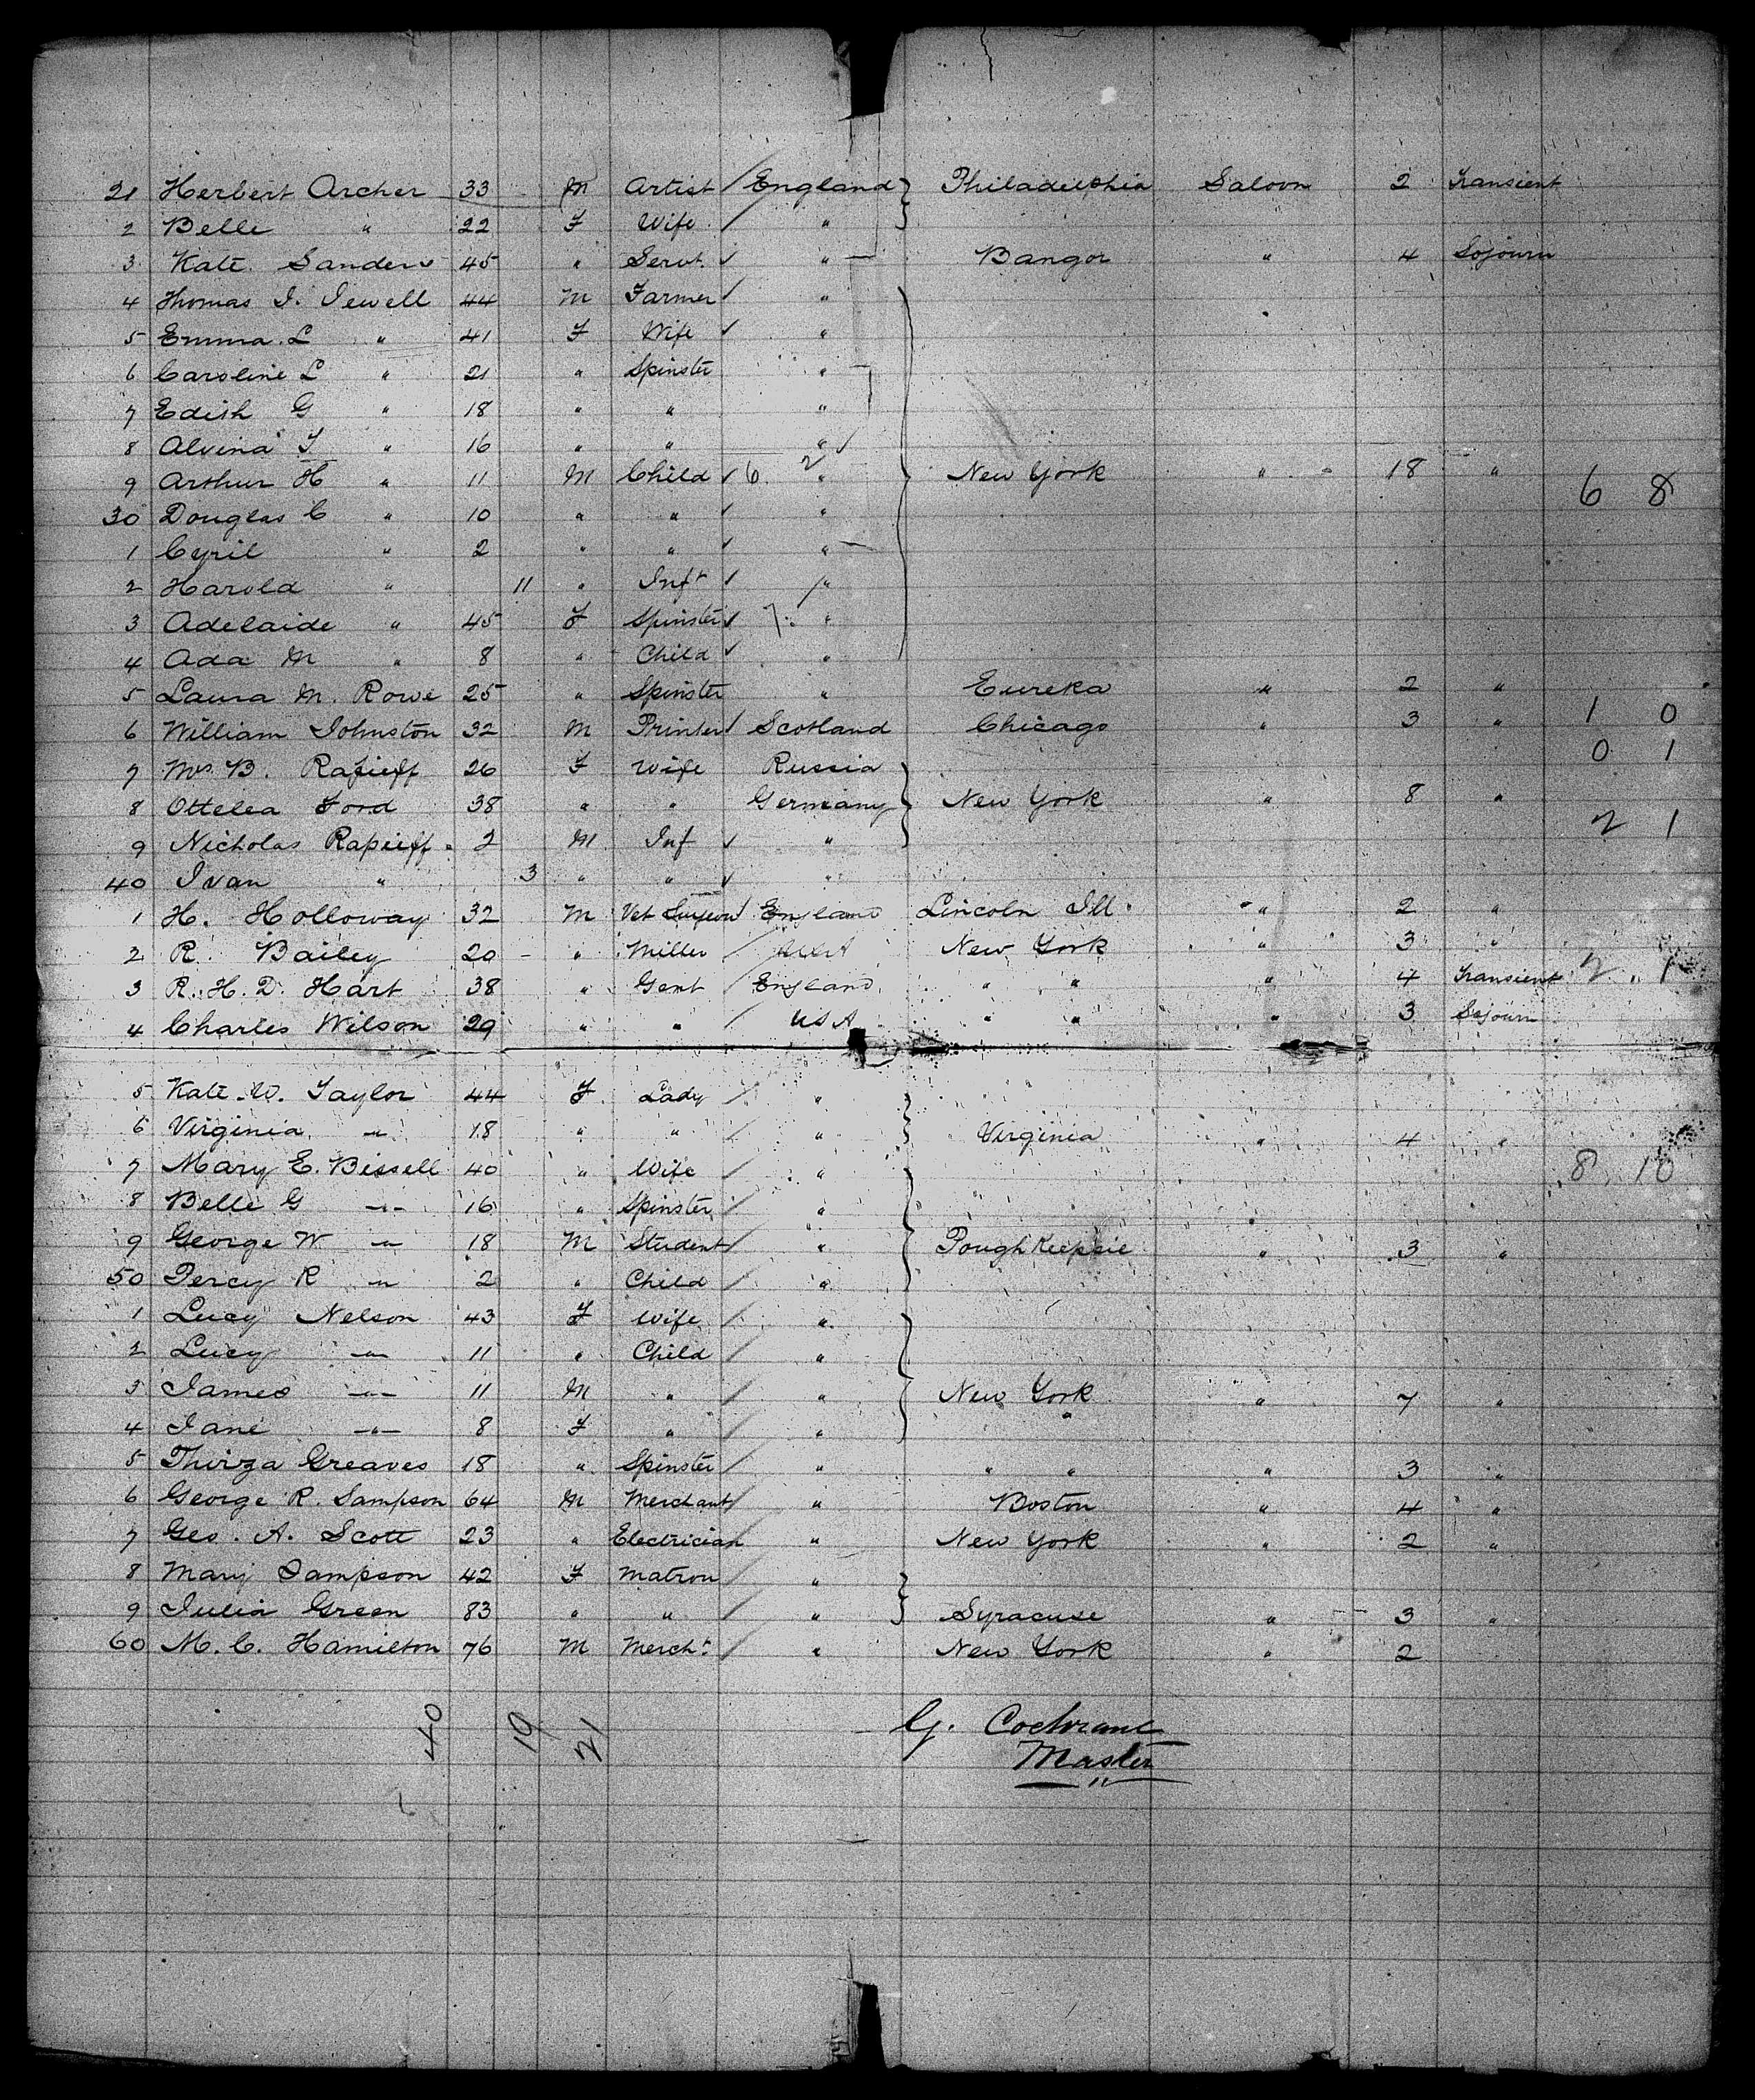 21 Herbert Archer 33 M Artist England Philadelphia Saloon 2 Transient
2 Belle " 22 F Wife "
3 Kate Sanders 45 " Servt. " Bangor " 4 Sojourn
4 Thomas J. Jewell 44 M Farmer "
5 Emma. L " 41 F Wife "
6 Caroline L " 21 " Spinster "
7 Edith G " 18 " " "
8 Alvina T " 16 " " "
9 Arthur H " 11 M Child 6 2 " New York " 18 " 6 8
30 Douglas C " 10 " " "
1 Cyril " 2 " " "
2 Harold " 11 " Inft "
3 Adelaide " 45 F Spinster 7 "
4 Ada M " 8 " Child "
5 Laura M. Rowe 25 " Spinster " Eureka " 2 "
6 William Johnston 32 M Printer Scotland Chicago " 3 " 1 0
7 Mrs B. Rapieff 26 F Wife Russia 0 1
8 Ottelea Ford 38 " " Germany New York " 8 "
9 Nicholas Rapieff 2 M Inf " 2 1
40 Ivan " 3 " " "
1 H. Holloway 32 M Vet Surgeon England Lincoln Ill. " 2 "
2 R. Bailey 20 " Miller USA New York " 3 "
3 R. H. D. Hart 38 " Gent England " " " 4 Transient 2 1
4 Charles Wilson 29 " " USA " " " 3 Sojourn
5 Kate. W. Taylor 44 F Lady "
6 Virginia " 18 " " " Virginia " 4 "
7 Mary E. Bissell 40 " Wife " 8 10
8 Belle G " 16 " Spinster "
9 George W " 18 M Student " Poughkeepsie " 3 "
50 Percy R " 2 " Child "
1 Lucy Nelson 43 F Wife "
2 Lucy " 11 " Child "
3 James " 11 M " " New York " 7 "
4 Jane " 8 F " " "
5 Thirza Greaves 18 " Spinster " " " " 3 "
6 George R. Sampson 64 M Merchant " Boston " 4 "
7 Geo. A. Scott 23 " Electrician " New York " 2 "
8 Mary Sampson 42 F Matron "
9 Julia Green 83 " " " Syracuse " 3 "
60 M. C. Hamilton 76 M Mercht. " New York " 2
40 19 21
G. Cochrane
Master